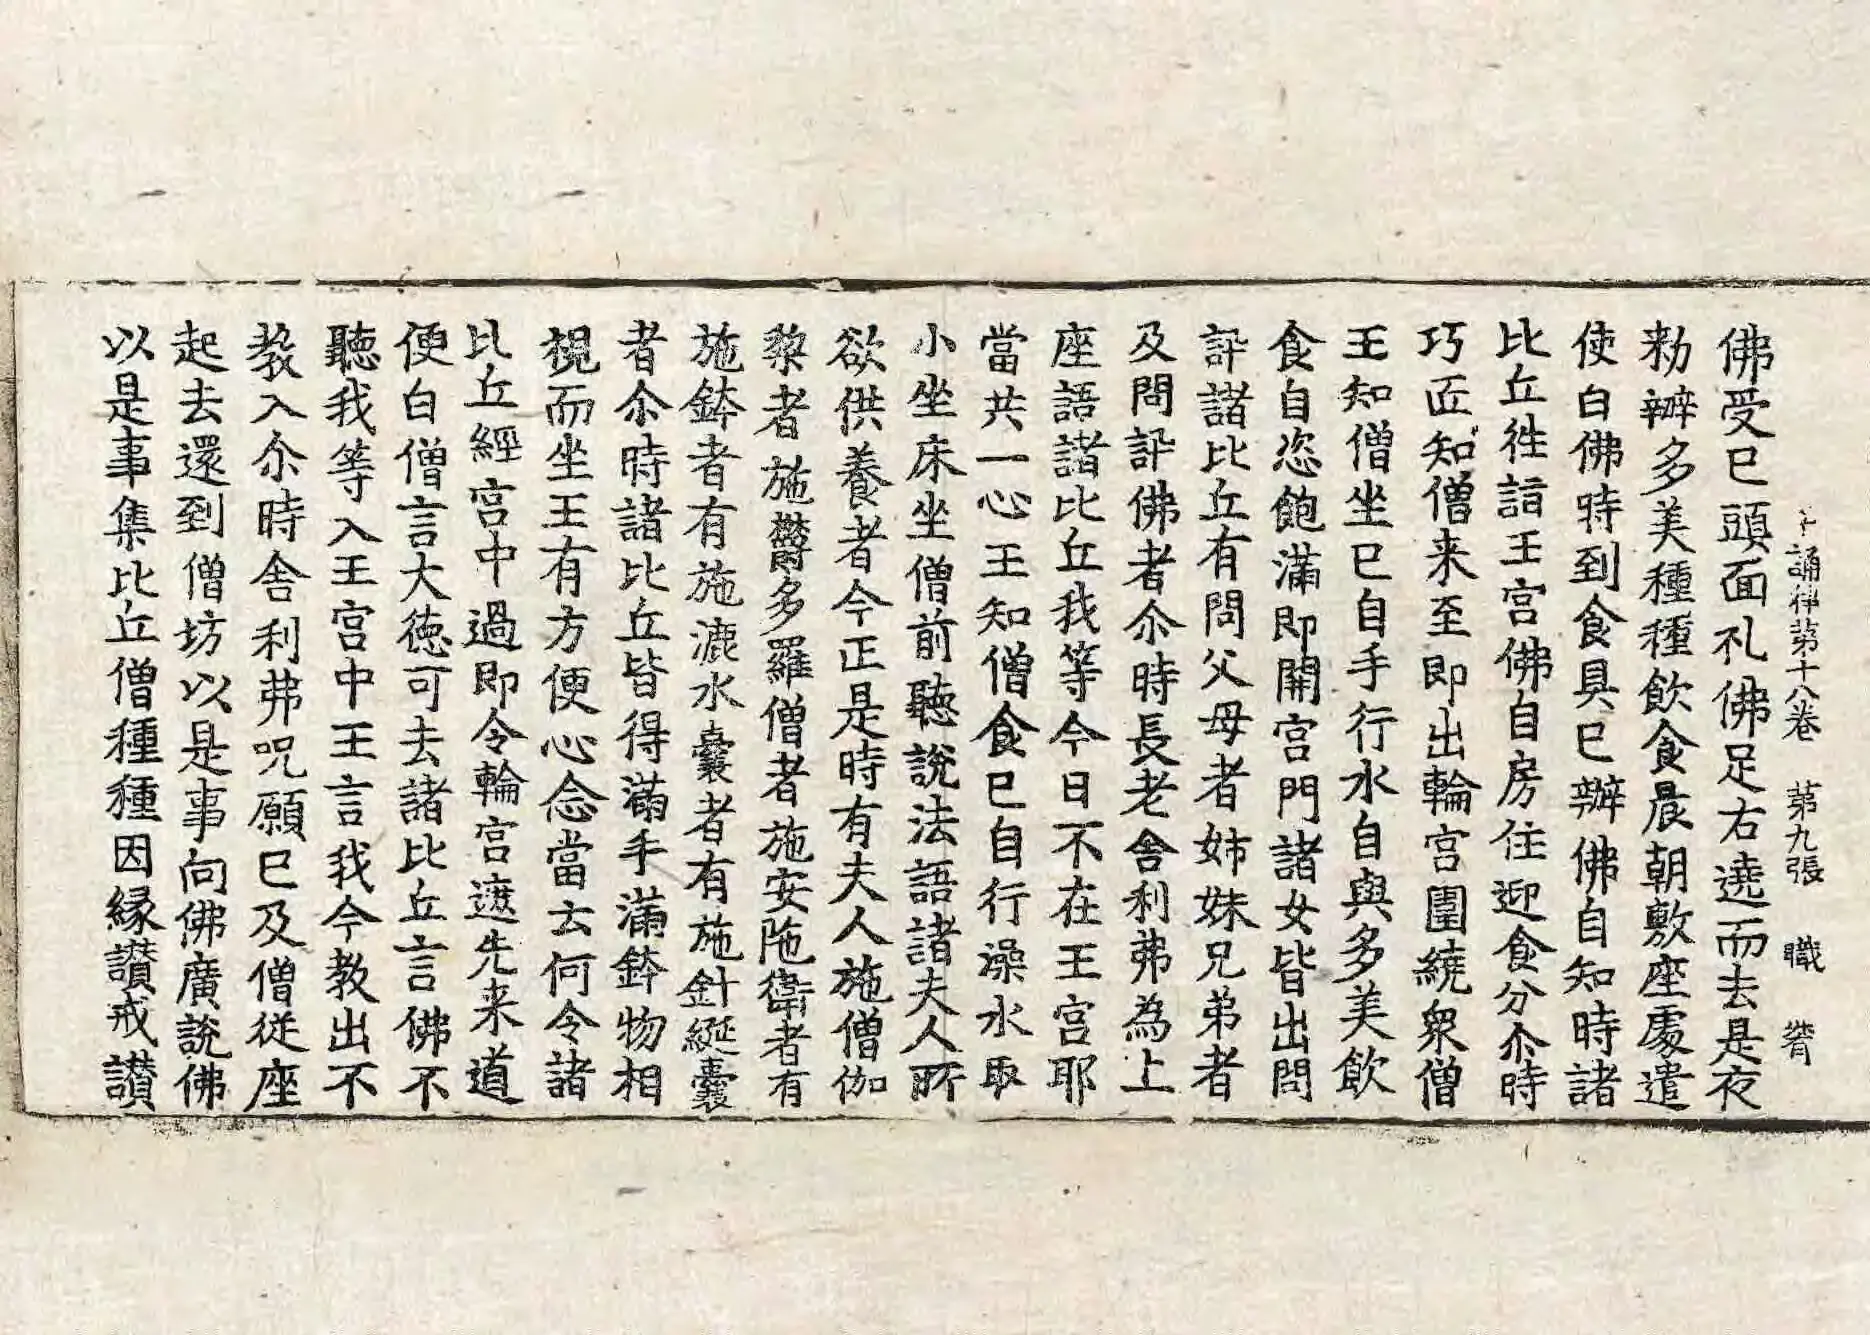 十誦律第十八卷　第九張　職　䇓
佛受已頭面礼佛足右遶而去是夜
勑辦多美種種飲食晨朝敷座處遣
使白佛時到食具已辦佛自知時諸
比丘徃詣王宮佛自房住迎食分尒時
巧匠知僧来至即出輪宮圍繞衆僧
王知僧坐已自手行水自與多美飲
食自恣飽滿即開宮門諸女皆出問
訊諸比丘有問父母者姊妹兄弟者
及問訊佛者尒時長老舍利弗為上
座語諸比丘我等今日不在王宮耶
當共一心王知僧食已自行澡水取
小坐床坐僧前聽說法語諸夫人所
欲供養者今正是時有夫人施僧伽
黎者施欝多羅僧者施安陁衛者有
施鉢者有施漉水囊者有施針綖囊
者尒時諸比丘皆得滿手滿鉢物相
視而坐王有方便心念當云何令諸
比丘經宮中過即令輪宮遮先来道
便白僧言大徳可去諸比丘言佛不
聽我等入王宮中王言我今教出不
教入尒時舍利弗呪願已及僧従座
起去還到僧坊以是事向佛廣說佛
以是事集比丘僧種種因縁讃戒讃